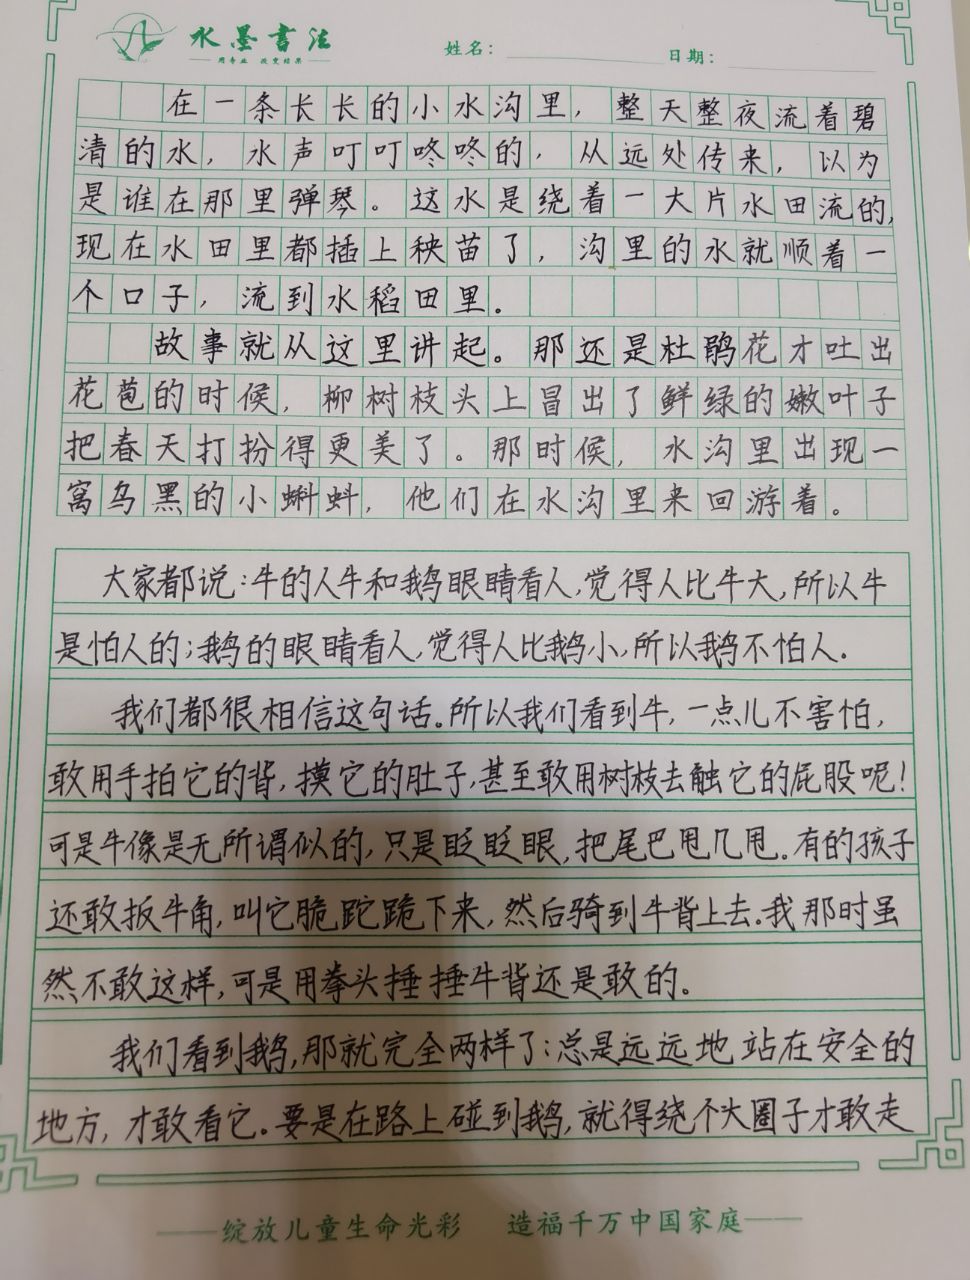 水墨书法
用专业 改变结果
姓名：
日期：
在一条长长的小水沟里，整天整夜流着碧
清的水，水声叮叮咚咚的，从远处传来，以为
是谁在那里弹琴。这水是绕着一大片水田流的，
现在水田里都插上秧苗了，沟里的水就顺着一
个口子，流到水稻田里。
故事就从这里讲起。那还是杜鹃花才吐出
花苞的时候，柳树枝头上冒出了鲜绿的嫩叶子
把春天打扮得更美了。那时候，水沟里出现一
窝乌黑的小蝌蚪，他们在水沟里来回游着。
大家都说：牛的人牛和鹅眼睛看人，觉得人比牛大，所以牛
是怕人的；鹅的眼睛看人，觉得人比鹅小，所以鹅不怕人.
我们都很相信这句话。所以我们看到牛，一点儿不害怕，
敢用手拍它的背，摸它的肚子，甚至敢用树枝去触它的屁股呢！
可是牛像是无所谓似的，只是眨眨眼，把尾巴甩几甩。有的孩子
还敢扳牛角，叫它脆跎跪下来，然后骑到牛背上去.我那时虽
然不敢这样，可是用拳头捶捶牛背还是敢的。
我们看到鹅，那就完全两样了：总是远远地站在安全的
地方，才敢看它。要是在路上碰到鹅，就得绕个大圈子才敢走
绽放儿童生命光彩 造福千万中国家庭